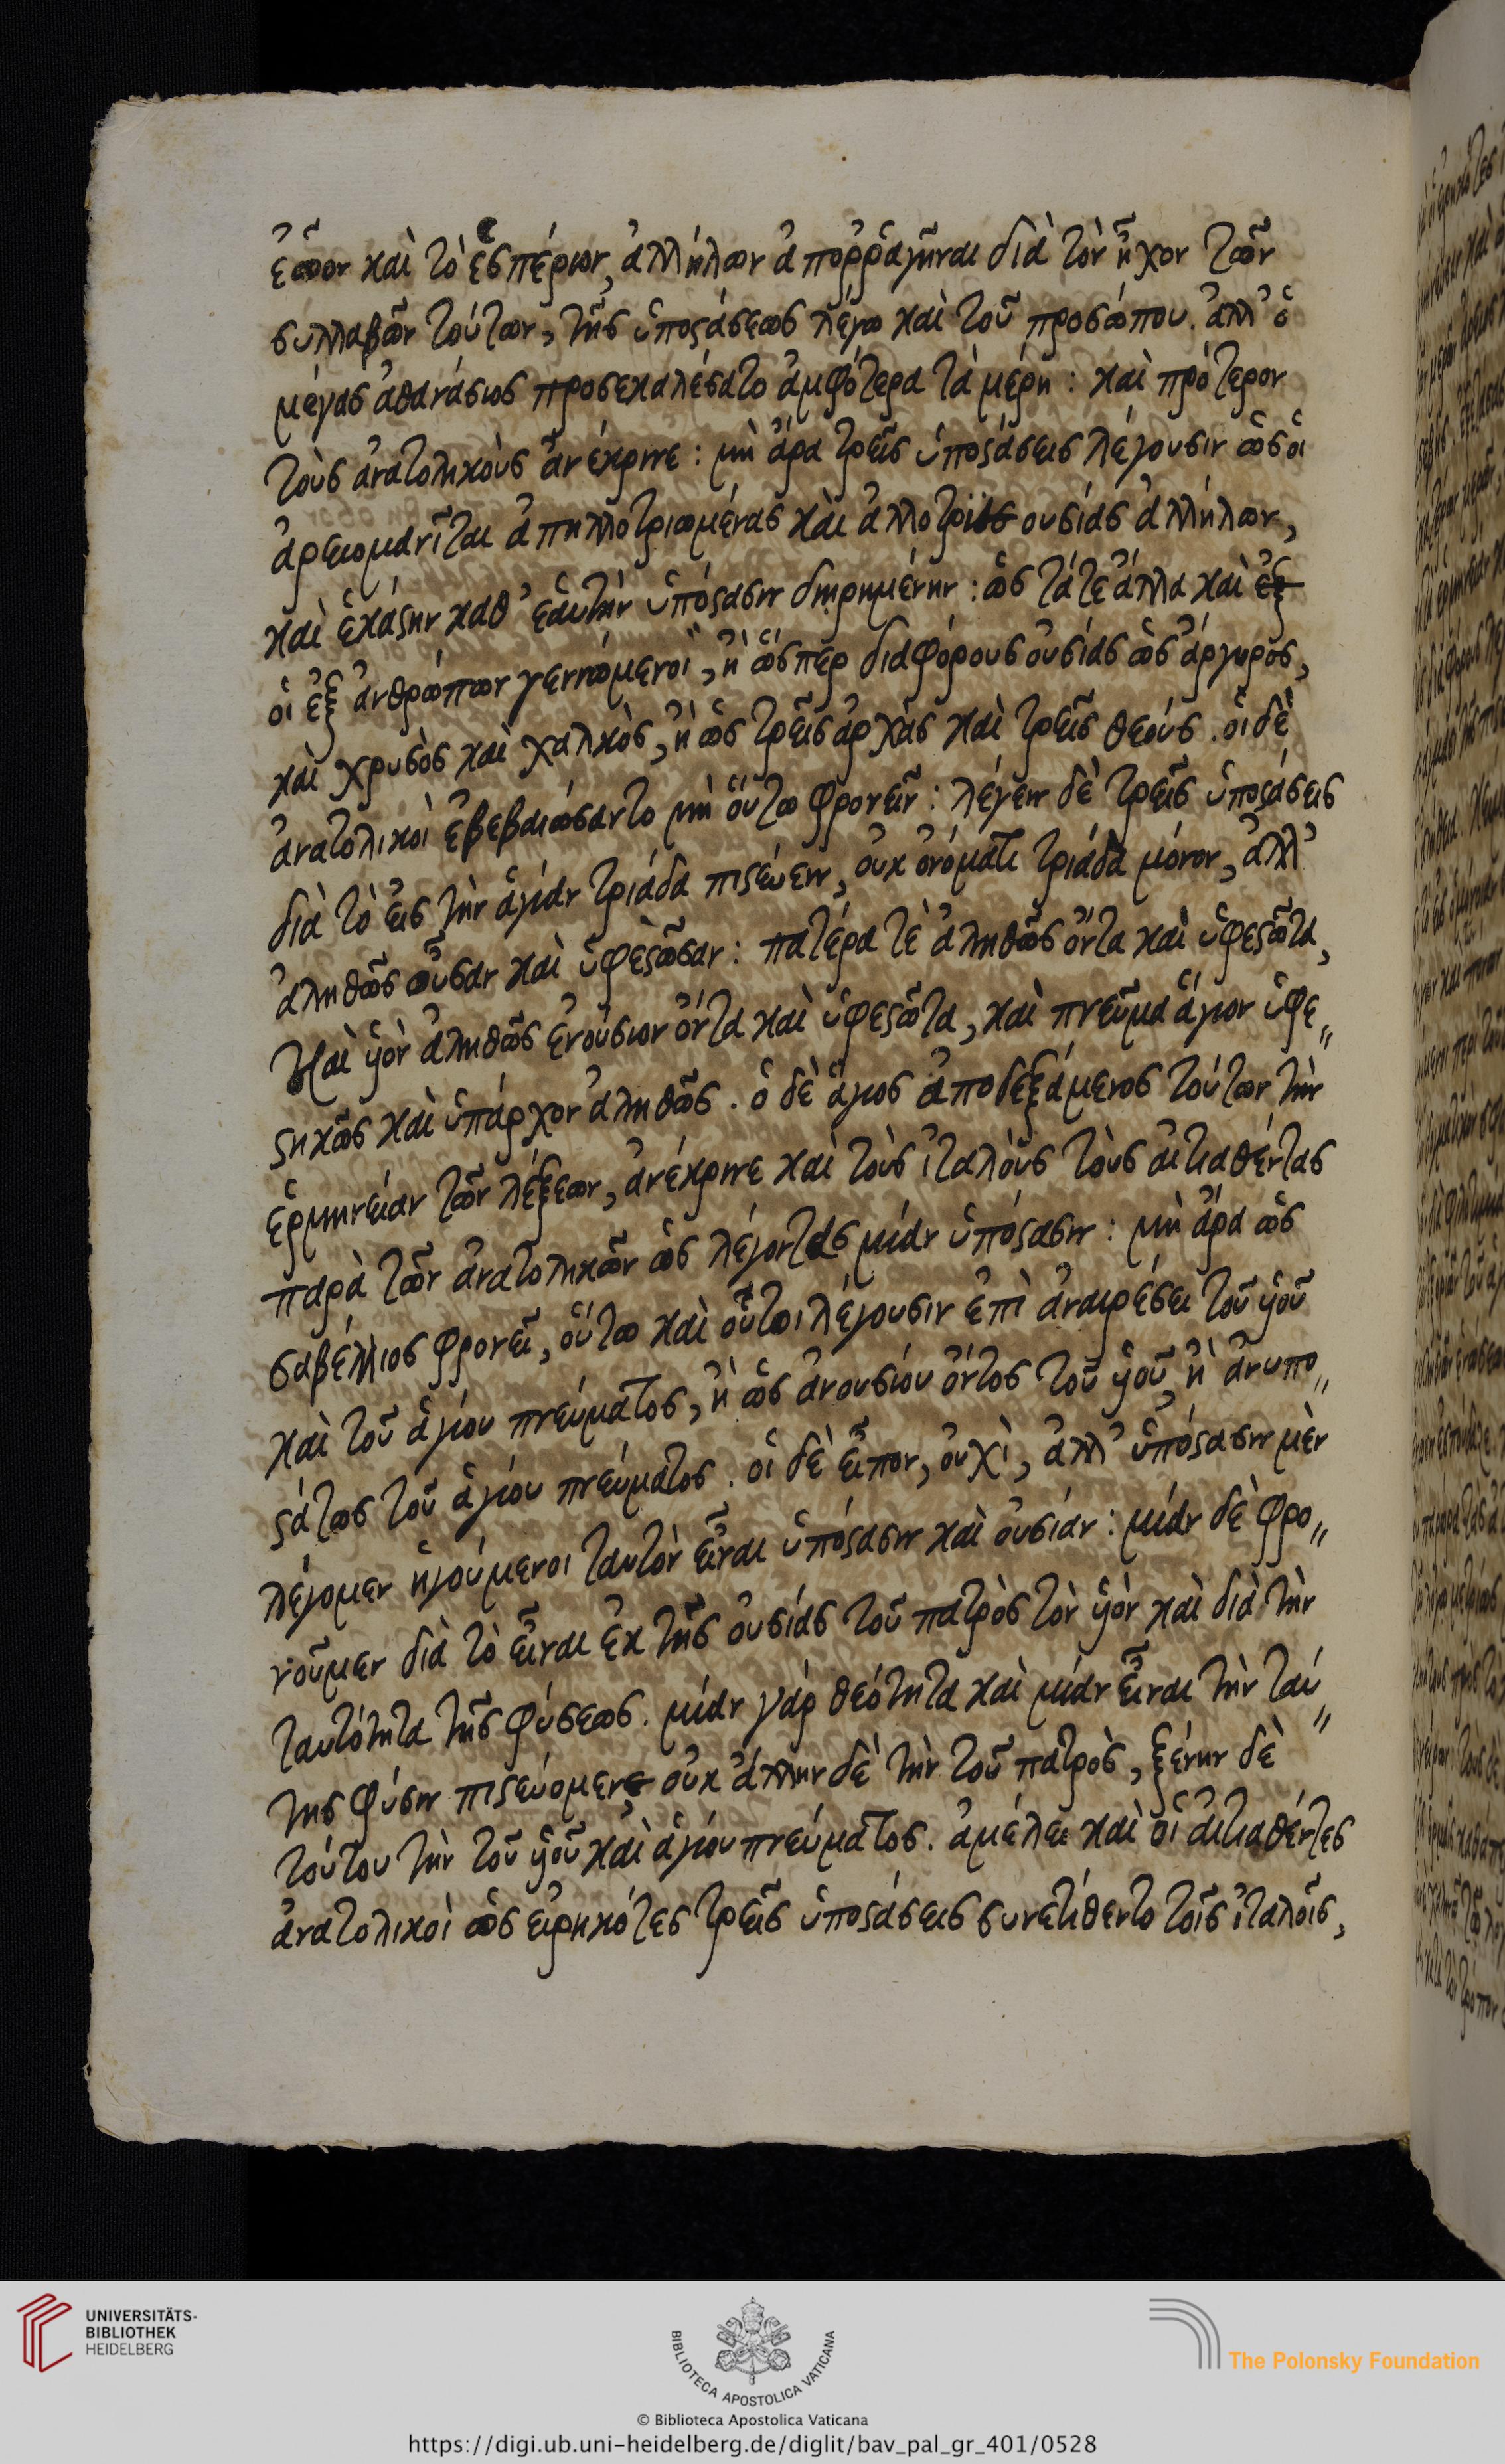 ἑῷον καὶ τὸ ἑσπέριον, ἀλλήλων ἀπορῥαγῆναι διὰ τὸν ἦχον τῶν
συλλαβῶν τούτων, τῆς ὑποστάσεως λέγω καὶ τοῦ προσώπου. ἀλλ' ὁ
μέγας ἀθανάσιος προσεκαλέσατο ἀμφότερα τὰ μέρη : καὶ πρότερον
τοὺς ἀνατολικοὺς ἀνέκρινε : μὴ ἄρα τρεῖς ὑποστάσεις λέγουσιν ὡς οἱ
ἀρειομανῖται ἀπηλλοτριωμένας καὶ ἀλλοτρι ουσίας ἀλλήλων,
καὶ ἑκάστην καθ' ἑαυτὴν ὑπόστασιν διῃρημένην : ὡς τά τε ἄλλα καὶ
οἱ ἐξ ἀνθρώπων γεννώμενοι, ἢ ὥσπερ διαφόρους οὐσίας ὡς ἄργυρος,
καὶ χρυσὸς καὶ χαλκὸς, ἢ ὡς τρεῖς ἀρχὰς καὶ τρεῖς θεούς. οἱ δὲ
ἀνατολικοὶ ἐβεβαιώσαντο μὴ οὕτω φρονεῖν : λέγειν δὲ τρεῖς ὑποστάσεις
διὰ τὸ εἰς τὴν ἁγίαν τριάδα πιστεύειν, οὐκ ὀνόματι τριάδα μόνον, ἀλλ'
ἀληθῶς οὖσαν καὶ ὑφεστῶσαν : πατέρα τὲ ἀληθῶς ὄντα καὶ ὑφεστῶτα,
καὶ ὑιὸν ἀληθῶς ἐνούσιον ὄντα καὶ ὑφεστῶτα, καὶ πνεῦμα ἅγιον ὑφε„
στηκῶς καὶ ὑπάρχον ἀληθῶς. ὁ δὲ ἅγιος ἀποδεξάμενος τούτων τὴν
ἑρμηνείαν τῶν λέξεων, ἀνέκρινε καὶ τοὺς ἰταλοὺς τοὺς αἰτιαθέντας
παρὰ τῶν ἀνατολικῶν ὡς λέγοντας μίαν ὑπόστασιν : μὴ ἄρα ὡς
σαβέλλιος φρονεῖ, οὕτω καὶ οὗτοι λέγουσιν ἐπὶ ἀναιρέσει τοῦ ὑιοῦ
καὶ τοῦ ἁγίου πνεύματος, ἢ ὡς ἀνουσίου ὄντος τοῦ ὑιοῦ, ἢ ἀνυπο„
στάτως τοῦ ἁγίου πνεύματος. οἱ δὲ εἶπον, οὐχὶ, ἀλλ' ὑπόστασιν μὲν
λέγομεν ἡγούμενοι ταυτὸν εἶναι ὑπόστασιν καὶ οὐσίαν : μίαν δὲ φρο„
νοῦμεν διὰ τὸ εἶναι ἐκ τῆς οὐσίας τοῦ πατρὸς τὸν ὑιὸν καὶ διὰ τὴν
ταυτότητα τῆς φύσεως. μίαν γάρ θεότητα καὶ μίαν εἶναι τὴν ταύ„
της φύσιν πιστεύομεν οὐκ ἄλλην δὲ τὴν τοῦ πατρὸς, ξένην δὲ
τούτου τὴν τοῦ ὑιοῦ καὶ ἁγίου πνεύματος. ἀμέλει καὶ οἱ αἰτιαθέντες
ἀνατολικοὶ ὡς εἰρηκότες τρεῖς ὑποστάσεις συνετίθεντο τοῖς ἰταλοῖς,
UNIVERSITÄTS-
BIBLIOTHEK
HEIDELBERG
BIBLIOTECA APOSTOLICA VATICANA
The Polonsky Foundation
© Biblioteca Apostolica Vaticana
https://digi.ub.uni-heidelberg.de/diglit/bav_pal_gr_401/0528